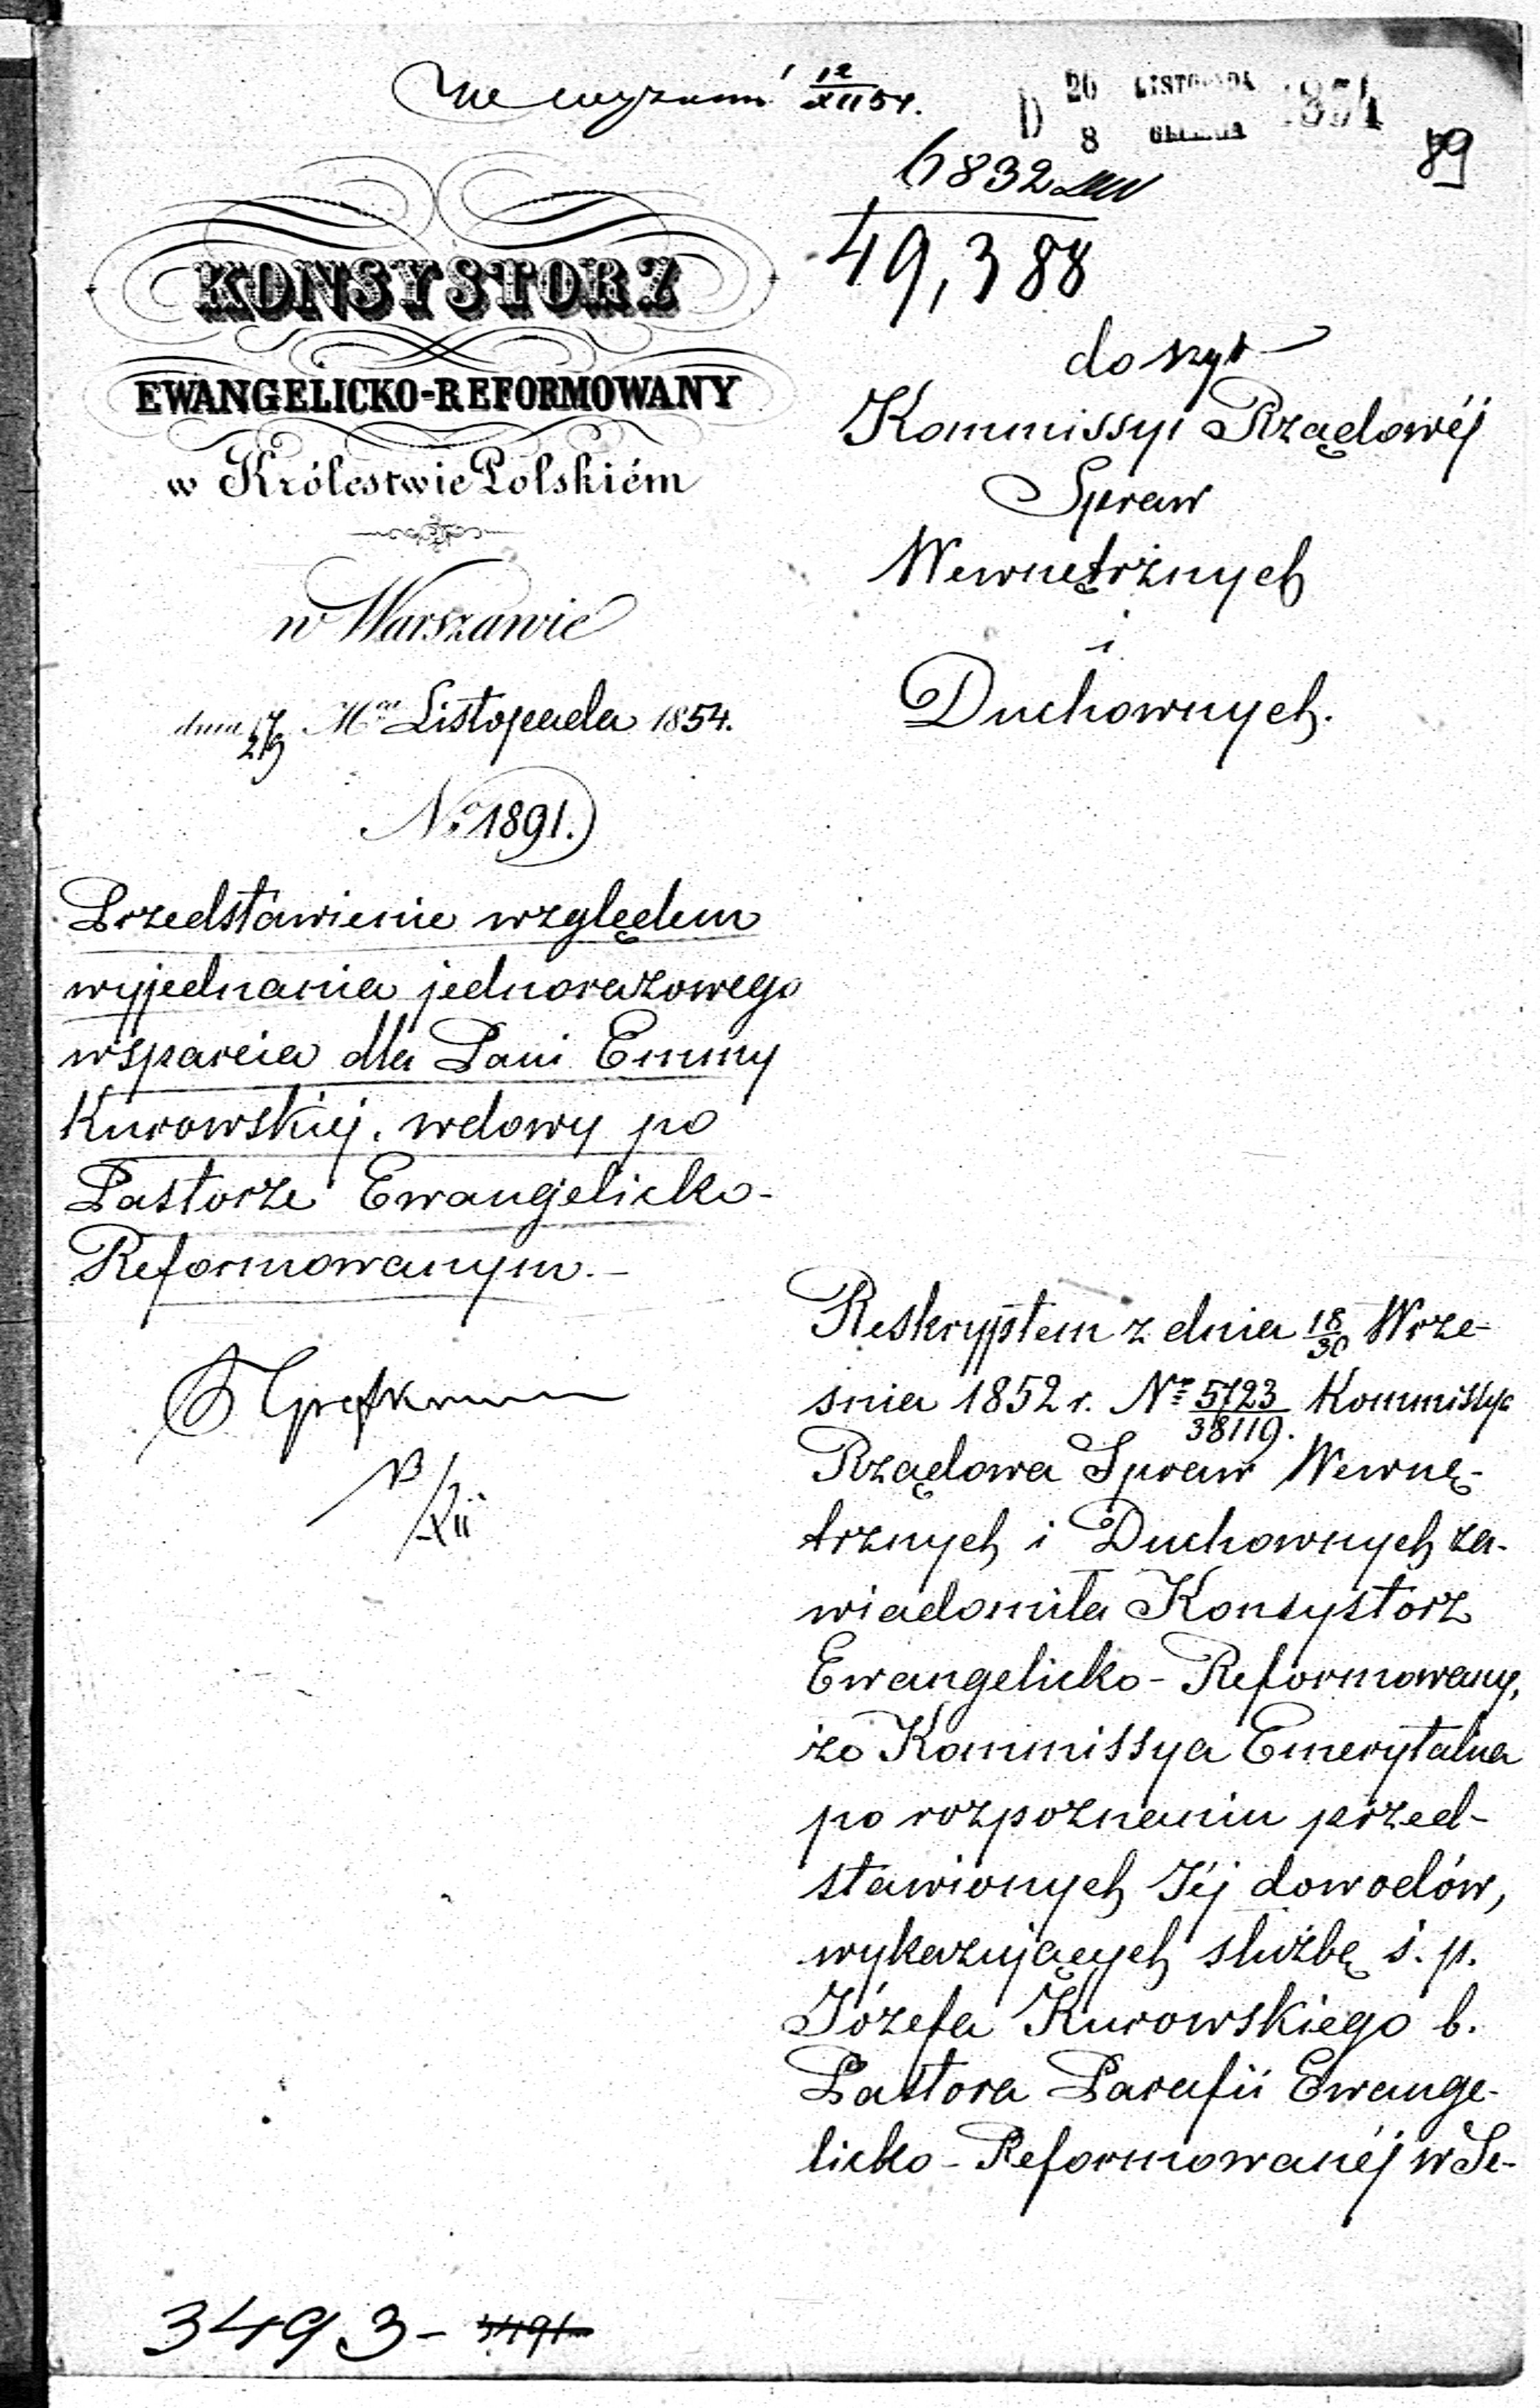 12/XII 54.
D 20/8 LISTOPADA/GRUDNIA 1854
89
6832
49,388
KONSYSTORZ
EWANGELICKO-REFORMOWANY
w Królestwie Polskiém
w Warszawie
dnia 17/29 Mca Listopada 1854.
No 1891.
Przedstawienie względem
wyjednania jednorazowego
wsparcia dla Pani Emmy
Kurowskiej, wdowy po
Pastorze Ewangelicko-
Reformowanym.-
XII
do
Kommissyi Rządowéj
Spraw
Wewnętrznych
i
Duchownych.
Reskryptem z dnia 18/30 Wrze-
śnia 1852 r. Nr 5723/38119. Kommissya
Rządowa Spraw Wewnę-
trznych i Duchownych za-
wiadomiła Konsystorz
Ewangelicko-Reformowany,
że Kommissya Emerytalna
po rozpoznaniu przed-
stawionych Jéj dowodów,
wykazujących służbę ś. p.
Józefa Kurowskiego b.
Pastora Parafii Ewange-
licko-Reformowanéj w Se-
3493- 3491